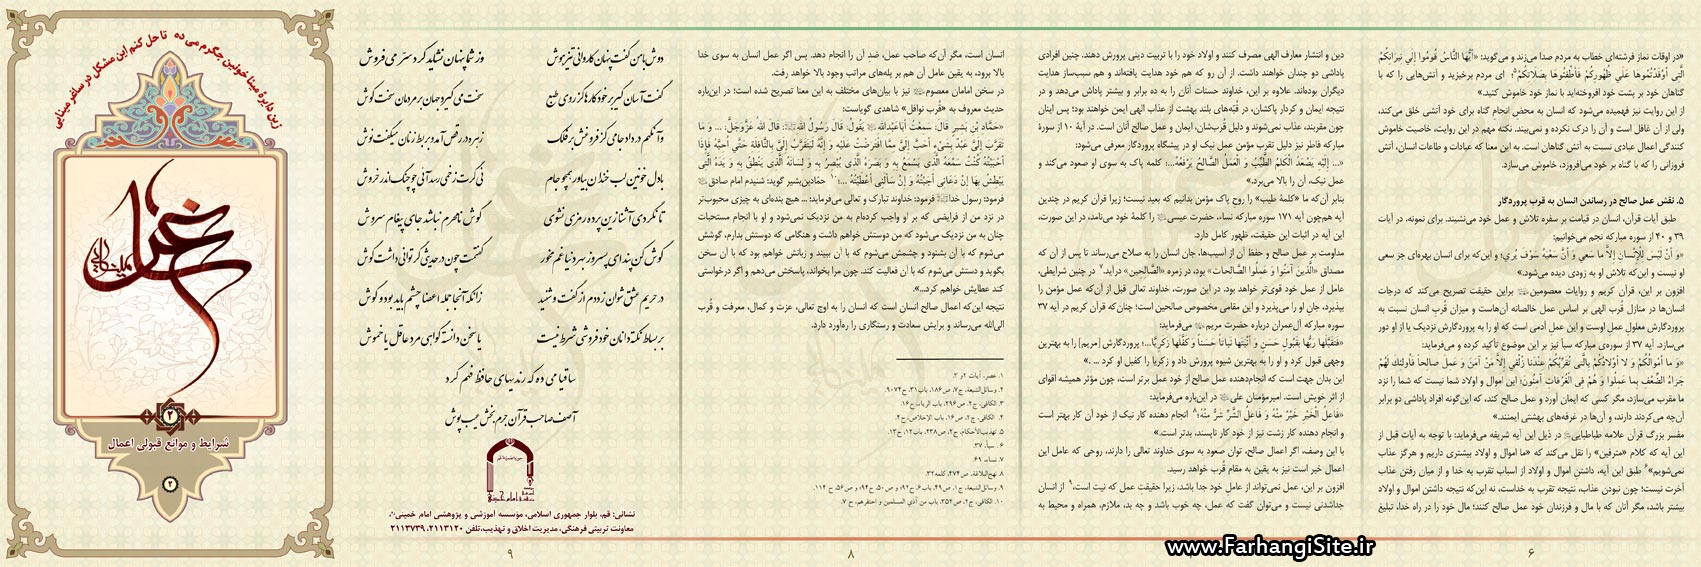 «در اوقات نماز فرشته‌ای خطاب به مردم صدا می‌زند و می‌گوید: «أَیُّهَا النَّاسُ قُومُوا إِلَی نِیرَانِکُمُ
الَّتِی أَوْقَدْتُمُوهَا عَلَی ظُهُورِکُمْ فَأَطْفِئُوهَا بِصَلَاتِکُمْ؛ ای مردم برخیزید و آتش‌هایی را که با
گناهان خود بر پشت خود افروخته‌اید با نماز خود خاموش کنید.»
از این روایت نیز فهمیده می‌شود که انسان به محض انجام گناه برای خود آتشی خلق می‌کند،
ولی از آن غافل است و آن را درک نکرده و نمی‌بیند. نکته مهم در این روایت، خاصیت خاموش
کنندگی اعمال عبادی نسبت به آتش گناهان است. به این معنا که عبادات و طاعات انسان، آتش
فروزانی را که با گناه بر خود می‌افروزد، خاموش می‌سازد.
۵. نقش عمل صالح در رساندن انسان به قرب پروردگار
طبق آیات قرآن، انسان در قیامت بر سفره تلاش و عمل خود می‌نشیند. برای نمونه، در آیات
۳۹ و ۴۰ از سوره مبارکه نجم می‌خوانیم:
«وَ أَنْ لَیْسَ لِلْإِنْسانِ إِلاَّ ما سَعی وَ أَنَّ سَعْیَهُ سَوْفَ یُری؛ و این‌که برای انسان بهره‌ای جز سعی
او نیست و این‌که تلاش او به زودی دیده می‌شود.»
افزون بر این، قرآن کریم و روایات معصومین براین حقیقت تصریح می‌کند که درجات
انسان‌ها در منازل قرب الهی بر اساس عمل خالصانه آن‌هاست و میزان قرب انسان نسبت به
پروردگارش معلول عمل اوست و این عمل آدمی است که او را به پروردگارش نزدیک یا از او دور
می‌سازد. آیه ۳۷ از سوره‌ی مبارکه سبأ نیز بر این موضوع تأکید کرده و می‌فرماید:
«وَ ما أَمْوالُکُمْ وَ لا أَوْلادُکُمْ بِالَّتی تُقَرِّبُکُمْ عِنْدَنا زُلْفی إِلاَّ مَنْ آمَنَ وَ عَمِلَ صالِحاً فَأُولئِکَ لَهُمْ
جَزاءُ الضِّعْفِ بِما عَمِلُوا وَ هُمْ فِی الْغُرُفاتِ آمِنُونَ؛ این اموال و اولاد شما نیست که شما را نزد
ما مقرب می‌سازد، مگر کسی که ایمان آورد و عمل صالح کند، که این‌گونه افراد پاداشی دو برابر
آن‌چه می‌کردند دارند، و آن‌ها در غرفه‌های بهشتی ایمنند.»
مفسر بزرگ قرآن علامه طباطبایی در ذیل این آیه شریفه می‌فرماید: با توجه به آیات قبل از
این آیه که کلام «مترفین» را نقل می‌کند که «ما اموال و اولاد بیشتری داریم و هرگز عذاب
نمی‌شویم» طبق این آیه، داشتن اموال و اولاد از اسباب تقرب به خدا و از میان رفتن عذاب
آخرت نیست؛ چون نبودن عذاب، نتیجه تقرب به خداست، نه این‌که نتیجه داشتن اموال و اولاد
بیشتر باشد، مگر آنان که با مال و فرزندان خود عمل صالح کنند؛ مال خود را در راه خدا، تبلیغ
۶
دین و انتشار معارف الهی مصرف کنند و اولاد خود را با تربیت دینی پرورش دهند. چنین افرادی
پاداشی دو چندان خواهند داشت. از آن رو که هم خود هدایت یافته‌اند و هم سبب‌ساز هدایت
دیگران بوده‌اند. علاوه بر این، خداوند حسنات آنان را به ده برابر و بیشتر پاداش می‌دهد و در
نتیجه ایمان و کردار پاکشان، در قبّه‌های بلند بهشت از عذاب الهی ایمن خواهند بود؛ پس اینان
چون مقربند، عذاب نمی‌شوند و دلیل قُرب‌شان، ایمان و عمل صالح آنان است. در آیهٔ ۱۰ از سورهٔ
مبارکه فاطر نیز دلیل تقرب مؤمن عمل نیک او در پیشگاه پروردگار معرفی می‌شود:
«... إِلَیْهِ یَصْعَدُ الْکَلِمُ الطَّیِّبُ وَ الْعَمَلُ الصَّالِحُ یَرْفَعُهُ...؛ کلمه پاک به سوی او صعود می‌کند و
عمل نیک، آن را بالا می‌برد.»
بنابر آن‌که ما «کلمهٔ طیب» را روح پاک مؤمن بدانیم که بعید نیست؛ زیرا قرآن کریم در چندین
آیه هم‌چون آیه ۱۷۱ سوره مبارکه نساء، حضرت عیسی را کلمهٔ خود می‌نامد، در این صورت،
این آیه در اثبات این حقیقت، ظهور کامل دارد.
مداومت بر عمل صالح و حفظ آن از آسیب‌ها، جان انسان را به صلاح می‌رساند تا پس از آن که
مصداق «الَّذینَ آمَنُوا وَ عَمِلُوا الصَّالِحات» بود، در زمره «الصَّالِحِین» درآید. در چنین شرایطی،
عامل از عمل خود قوی‌تر خواهد بود. در این صورت، خداوند تعالی قبل از آن‌که عمل مؤمن را
بپذیرد، جان او را می‌پذیرد و این مقامی مخصوص صالحین است؛ چنان‌که قرآن کریم در آیه ۳۷
سوره مبارکه آل‌عمران درباره حضرت مریم می‌فرماید:
«فَتَقَبَّلَها رَبُّها بِقَبُولٍ حَسَنٍ وَ أَنْبَتَها نَباتاً حَسَناً وَ کَفَّلَها زَکَرِیَّا...؛ پروردگارش [مریم] را به بهترین
وجهی قبول کرد و او را به بهترین شیوه پرورش داد و زکریا را کفیل او کرد ... .»
این بدان جهت است که انجام‌دهنده عمل صالح از خود عمل برتر است، چون مؤثر همیشه اقوای
از اثر خویش است. امیرمؤمنان علی در این‌باره می‌فرماید:
«فَاعِلُ الْخَیْرِ خَیْرٌ مِنْهُ وَ فَاعِلُ الشَّرِّ شَرٌّ مِنْهُ؛ انجام دهنده کار نیک از خود آن کار بهتر است
و انجام دهنده کار زشت نیز از خود کار ناپسند، بدتر است.»
با این وصف، اگر اعمال صالح، توان صعود به سوی خداوند تعالی را دارند، روحی که عامل این
اعمال خیر است نیز به یقین به مقام قُرب خواهد رسید.
افزون بر این، عمل نمی‌تواند از عاملِ خود جدا باشد، زیرا حقیقت عمل که نیت است، از انسان
جداشدنی نیست و می‌توان گفت که عمل، چه خوب باشد و چه بد، ملازم، همراه و محیط به
انسان است، مگر آن‌که صاحب عمل، ضد آن را انجام دهد. پس اگر عمل انسان به سوی خدا
بالا برود، به یقین عامل آن هم بر پله‌های مراتب وجود بالا خواهد رفت.
در سخن امامان معصوم نیز با بیان‌های مختلف به این معنا تصریح شده است؛ در این‌باره
حدیث معروف به «قُرب نوافل» شاهدی گویاست:
«حَمَّادِ بْنِ بَشِیرٍ قَالَ: سَمِعْتُ أَبَاعَبْدِاللهِ یَقُولُ: قَالَ رَسُولُ اللهِ: قَالَ اللهُ عَزَّوَجَلَّ: ... وَ مَا
تَقَرَّبَ إِلَیَّ عَبْدٌ بِشَیْءٍ أَحَبَّ إِلَیَّ مِمَّا افْتَرَضْتُ عَلَیْهِ وَ إِنَّهُ لَیَتَقَرَّبُ إِلَیَّ بِالنَّافِلَةِ حَتَّی أُحِبَّهُ فَإِذَا
أَحْبَبْتُهُ کُنْتُ سَمْعَهُ الَّذِی یَسْمَعُ بِهِ وَ بَصَرَهُ الَّذِی یُبْصِرُ بِهِ وَ لِسَانَهُ الَّذِی یَنْطِقُ بِهِ وَ یَدَهُ الَّتِی
یَبْطِشُ بِهَا إِنْ دَعَانِی أَجَبْتُهُ وَ إِنْ سَأَلَنِی أَعْطَیْتُهُ ...؛ حمّادبن‌بشیر گوید: شنیدم امام صادق
فرمود: رسول خدا فرمود: خداوند تبارک و تعالی می‌فرماید: ... هیچ بنده‌ای به چیزی محبوب‌تر
در نزد من از فرایضی که بر او واجب کرده‌ام به من نزدیک نمی‌شود و او با انجام مستحبات
چنان به من نزدیک می‌شود که من دوستش خواهم داشت و هنگامی که دوستش بدارم، گوشش
می‌شوم که با آن بشنود و چشمش می‌شوم که با آن ببیند و زبانش خواهم بود که با آن سخن
بگوید و دستش می‌شوم که با آن فعالیت کند. چون مرا بخواند، پاسخش می‌دهم و اگر درخواستی
کند عطایش خواهم کرد...».
نتیجه این‌که اعمال صالح انسان است که انسان را به اوج تعالی، عزت و کمال، معرفت و قُرب
الی‌الله می‌رساند و برایش سعادت و رستگاری را ره‌آورد دارد.
۱. عصر، آیات ۲و ۳.
۲. وسائل‌الشیعة، ج۷، ص۱۸۶، باب۳۱، ح۹۰۷۴.
۳. الکافی، ج۲، ص۲۹۶، باب الریاء، ح۱۶.
۴. الکافی، ج۲، ص۱۶، باب الإخلاص، ح۴.
۵. تهذیب‌الأحکام، ج۲، ص۲۳۸، باب۱۲، ح۱۳.
۶. سبأ، ۳۷.
۷. نساء، ۶۹.
۸. نهج‌البلاغة، ص۴۷۴، کلمه ۳۲.
۹. وسائل‌الشیعة، ج۱، ص۴۹، باب ۶، ح۹۲ و ص۵۰، ح۹۴ و ص۵۶، ح ۱۱۴.
۱۰. الکافی، ج۲، ص۳۵۲، باب من أذی المسلمین و احتقرهم، ح ۷.
۸
دوش با من گفت پنهان کاردانی تیزهوش
وز شما پنهان نشاید کرد سرّ می فروش
گفت آسان گیر بر خود کارها کز روی طبع
سخت می گیرد جهان بر مردمان سخت کوش
وآنگهم در داد جامی کز فروغش بر فلک
زهره در رقص آمد و بربط زنان میگفت نوش
با دل خونین لب خندان بیاور همچو جام
نی گرت زخمی رسد آئی چو چنگ اندر خروش
تا نگردی آشنا زین پرده رمزی نشنوی
گوش نامحرم نباشد جای پیغام سروش
گوش کن پند ای پسر وز بهر دنیا غم مخور
گفتمت چون در حدیثی گر توانی داشت گوش
در حریم عشق نتوان زد دم از گفت و شنید
زانکه آنجا جمله اعضا چشم باید بود و گوش
بر بساط نکته دانان خودفروشی شرط نیست
یا سخن دانسته گو ای مرد عاقل یا خموش
ساقیا می ده که رندیهای حافظ فهم کرد
آصف صاحب قرآن جرم بخش عیب پوش
نشانی: قم، بلوار جمهوری اسلامی، مؤسسه آموزشی و پژوهشی امام خمینی
معاونت تربیتی فرهنگی، مدیریت اخلاق و تهذیب،تلفن ۲۱۱۳۱۲۰ـ۲۱۱۳۷۳۹
۹
زین دایرهٔ مینا خونین جگرم می ده تا حل کنم این مشکل در ساغر مینایی
ساغر
مینایی
۲
شرایط و موانع قبولی اعمال
۲
www.FarhangiSite.ir